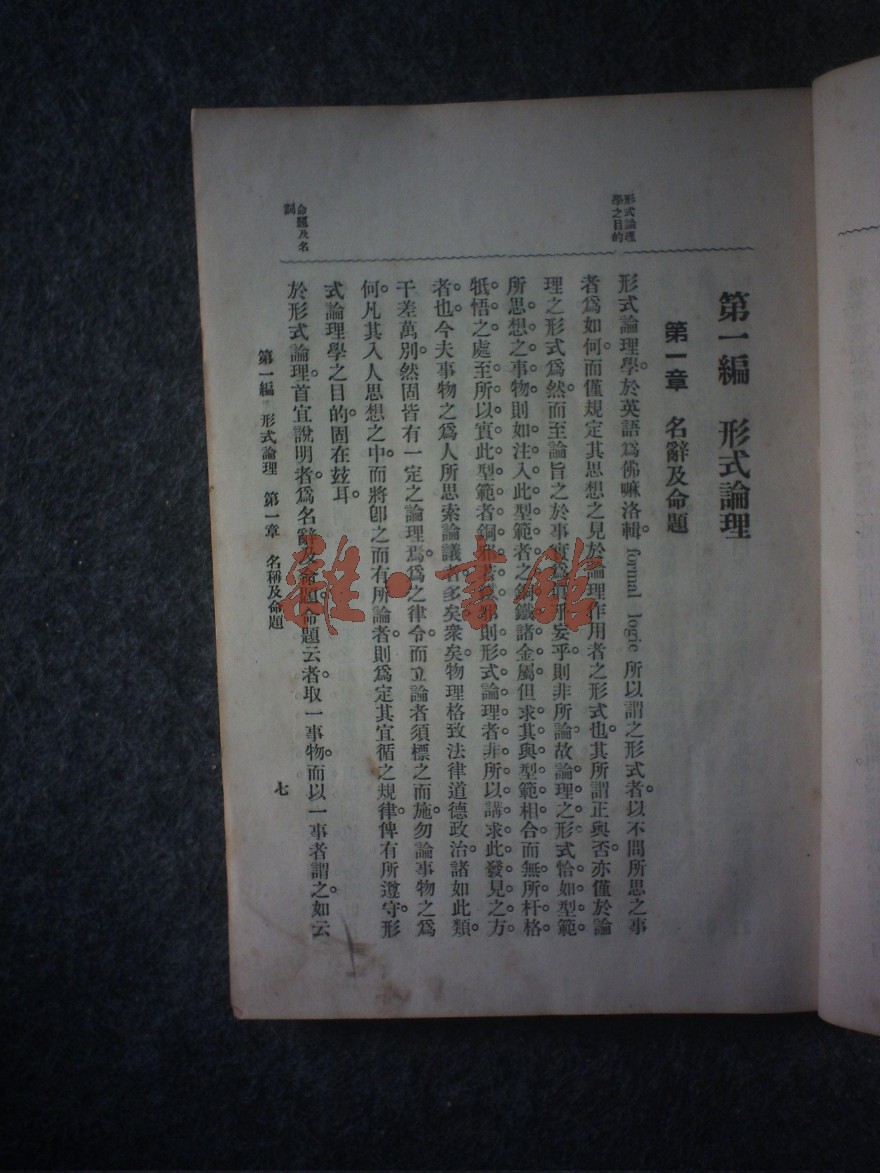 第一編　形式論理
第一章　名辭及命題
形式論理
學之目的
形式論理學。於英語爲佛嘛洛輯。formal logic 所以謂之形式者。以不問所思之事
者爲如何。而僅規定其思想之見於論理作用者之形式也。其所謂正與否。亦僅於論
理之形式爲然。而至論旨之於事實乎。則非所論。故論理之形式。恰如型範。
所思想之事物。則如注入此型範者之銅鐵諸金屬。但求其與型範相合。而無所杆格
牴悟之處。至所以實此型範者。則形式論理者。非所以講求此發見之方
者也。今夫事物之爲人所思索論議者多矣衆矣。物理格致法律道德政治諸如此類。
千差萬別。然固皆有一定之論理焉。爲之律令。而立論者須標之而施。勿論事物之爲
何。凡其入人思想之中。而將卽之而有所論者。則爲定其宜循之規律。俾有所遵守。形
式論理學之目的。固在玆耳。
命題及名
詞
於形式論理。首宜說明者。爲名辭及命題。命題云者。取一事物。而以一事者謂之。如云
第一編　形式論理　第一章　名稱及命題
七
雜·書館